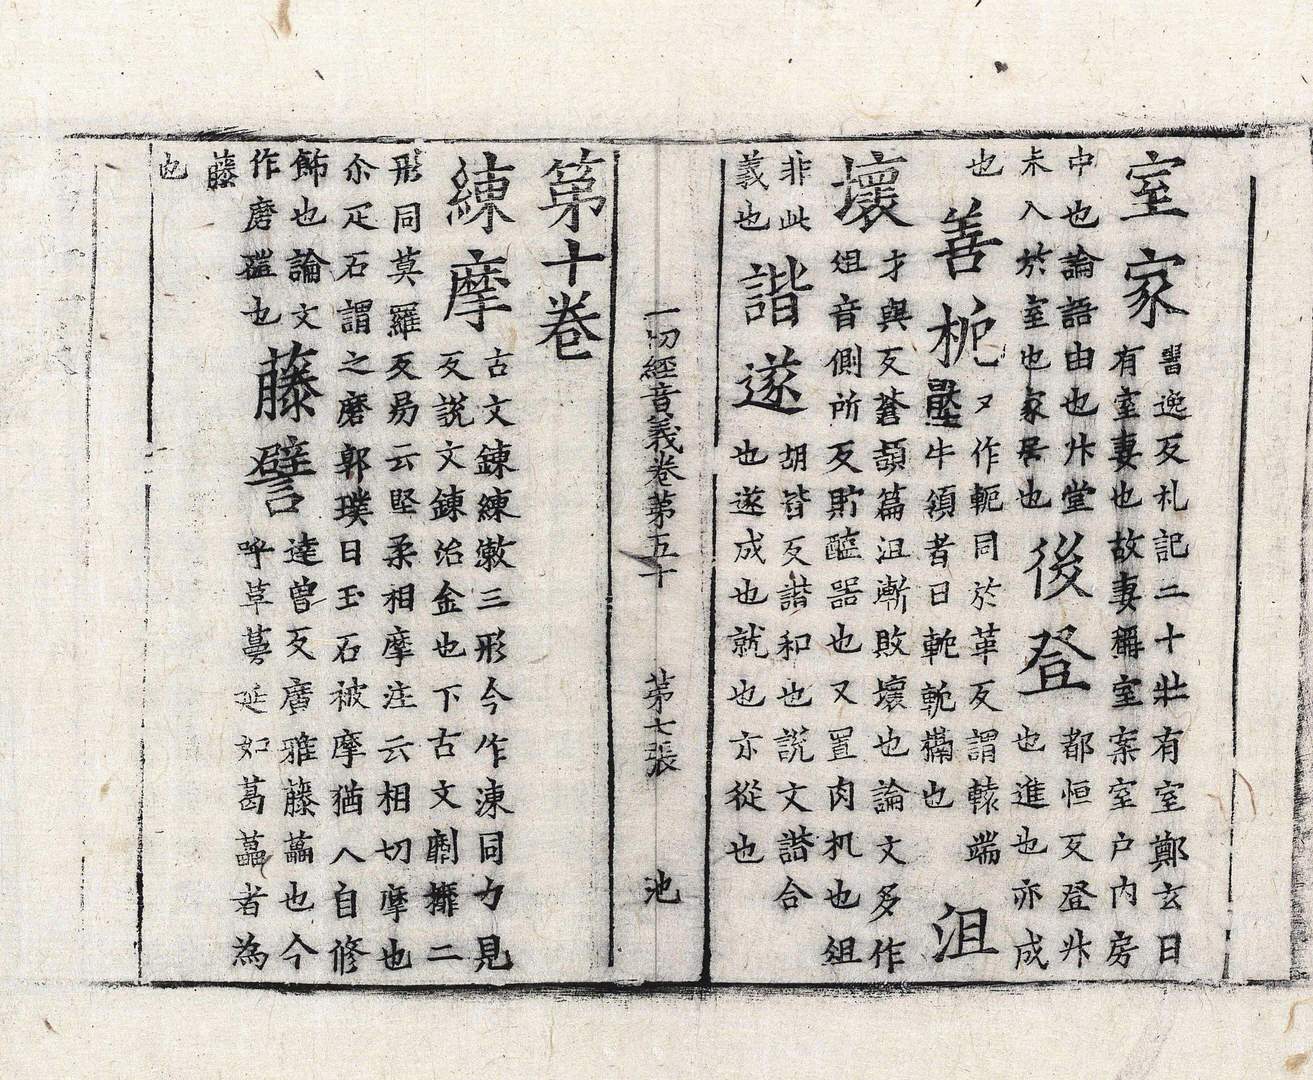 室家
書逸反札記二十壯有室鄭玄曰
有室妻也故妻稱室案室户内房
中也論語由也升堂
未入於室也家居也
後登
都恒反登升
也進也亦成
也
善軛
又作軛同於革反謂轅端
壓牛領者曰軛軛䊧也
沮
才與反蒼頡篇沮漸敗壞也論文多作
俎音側所反貯醢器也又置肉机也俎
壞
非此
義也
諧
胡皆反諧和也說文諧合
也遂成也就也亦從也
遂
一切經音義卷第五十 第七張 池
第十卷
練摩
古文鍊練漱三形今作湅同力見
反說文鍊治金也下古文劘攡二
形同莫羅反易云堅柔相摩注云相切摩也
尒疋石謂之磨郭璞曰玉石被摩猶人自修
飾也論文
作磨磑也
藤譬
達曾反廣雅藤藟也今
呼草蔓延如葛藟者為
藤
也